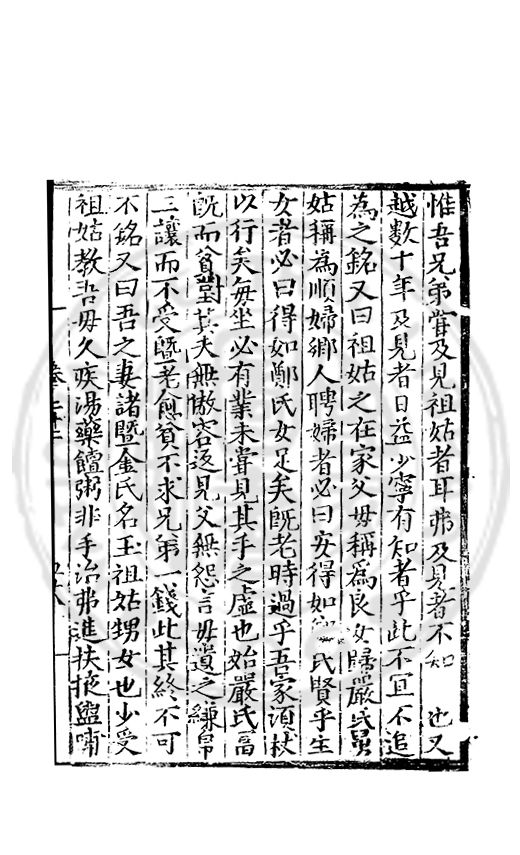 惟吾兄弟甞及見祖姑者耳弗及見者不知 也又
越数十年及見者日益少寧有知者乎此不宜不追
為之銘又曰祖姑之在家父毋稱爲良女歸嚴氏舅
姑稱為順婦鄉人聘婦者必曰安得如鄭氏賢乎生
女者必曰得如鄭氏女足矣旣老時過乎吾家湏杖
以行矣每坐必有業未甞見其手之虛也始嚴氏富
旣而貧對其夫無慠容返見父無怨言毋遺之縑帛
三讓而不受曁老愈貧不求兄弟一錢此其終不可
不銘又曰吾之妻諸曁金氏名玉祖姑甥女也少受
祖姑教吾毋久疾湯藥饘粥非手治弗進扶掖盥嗽